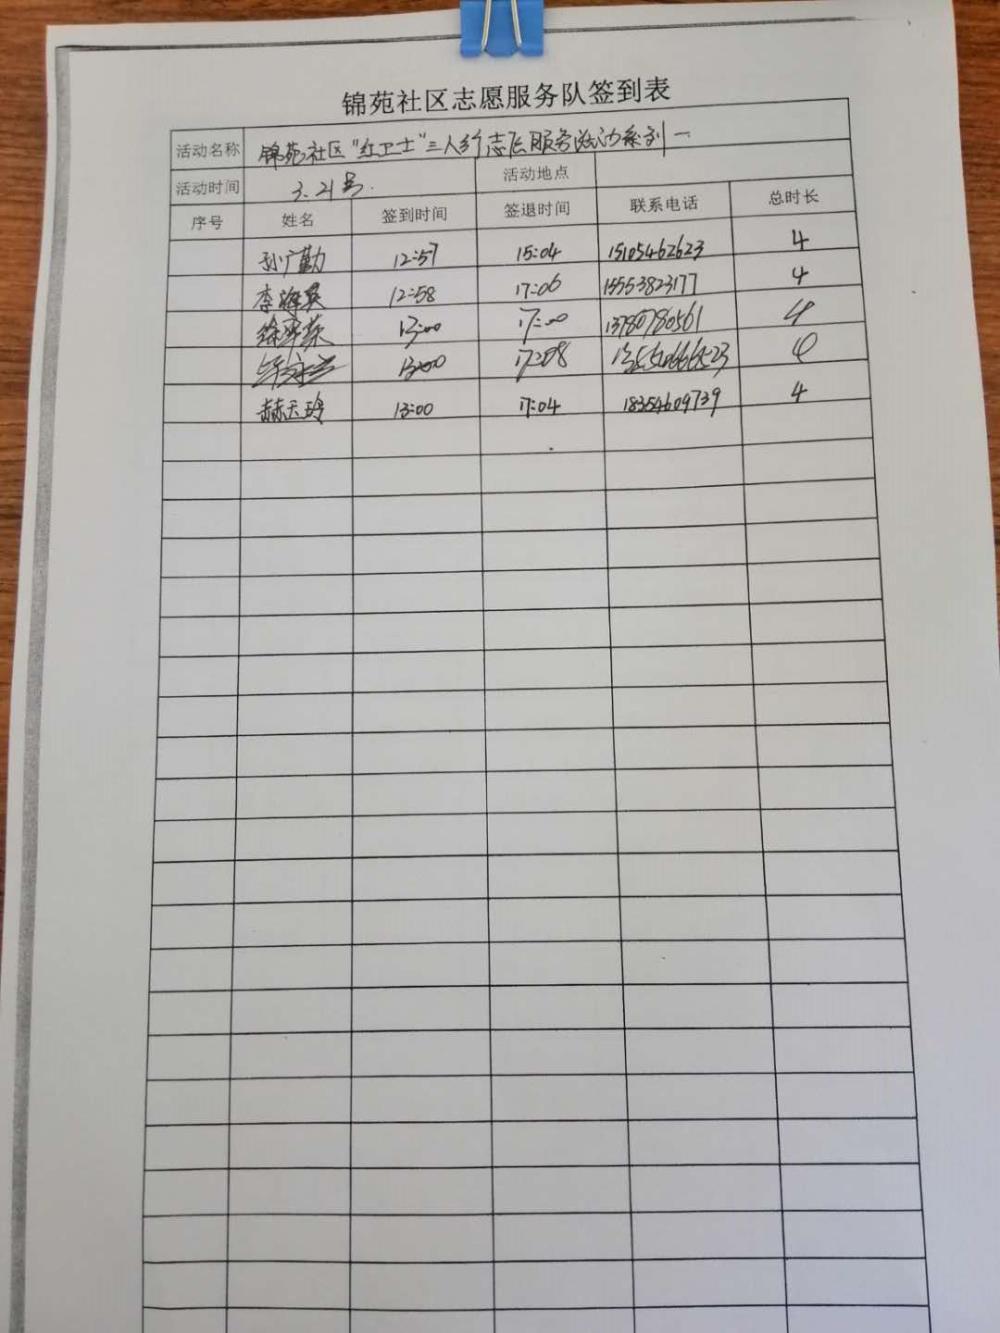 锦苑社区志愿服务队签到表
活动名称 锦苑社区"红卫士"三人行志愿服务活动系列一
活动时间 3.21号. 活动地点
序号 姓名 签到时间 签退时间 联系电话 总时长
孙广勤 12:57 15:04 15105462623 4
李海英 12:58 17:06 15553823177 4
徐翠荣 13:00 17:00 13780780561 4
13:00 17:08 4
赫天玲 13:00 17:04 18354609739 4